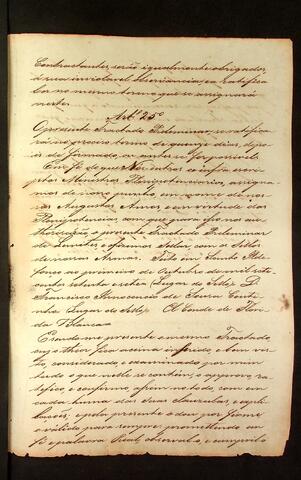 Contractantes serão igualmente obrigados
á sua inviolavel observancia, e a ratifica-
la no mesmo termo que se assignará
neste.
Artº 25º
O presente Tractado Preliminar se ratifica-
rá no preciso termo de quinze dias, depo-
is de firmado, ou antes se for possivel.
Em fé do que Nós outros os infra escri-
ptos Ministros Plenipotenciarios, assigna-
mos de nosso punho, em nome de nos-
sos Augustos Amos, e em virtude das
Plenipotencias com que para isso nos au-
thorisarão, o presente Tractado Preliminar
de Limites, e o fizemos Sellar com os Sellos
de nossas Armas. Feito em Santo Ilde-
fonso ao primeiro de Outubro de mil sete-
centos setenta e sete. (Lugar do Sello) D.
Francisco Innocencio de Souza Couti-
nho (Lugar do Sello) O Conde de Flori-
da Blanca
E sendo-me presente o mesmo Tractado,
cujo theor fica acima inserido, e bem vis-
to, considerado, e examinado por mim
tudo o que nelle se contém, o approvo, ra-
tifico, e confirmo, assim no todo, como em
cada huma das suas clausulas, e estipu-
lações, e pela presente o dou por firme
e válido para sempre; promettendo em
fé e palavra Real, observal-o, e cumpril-o